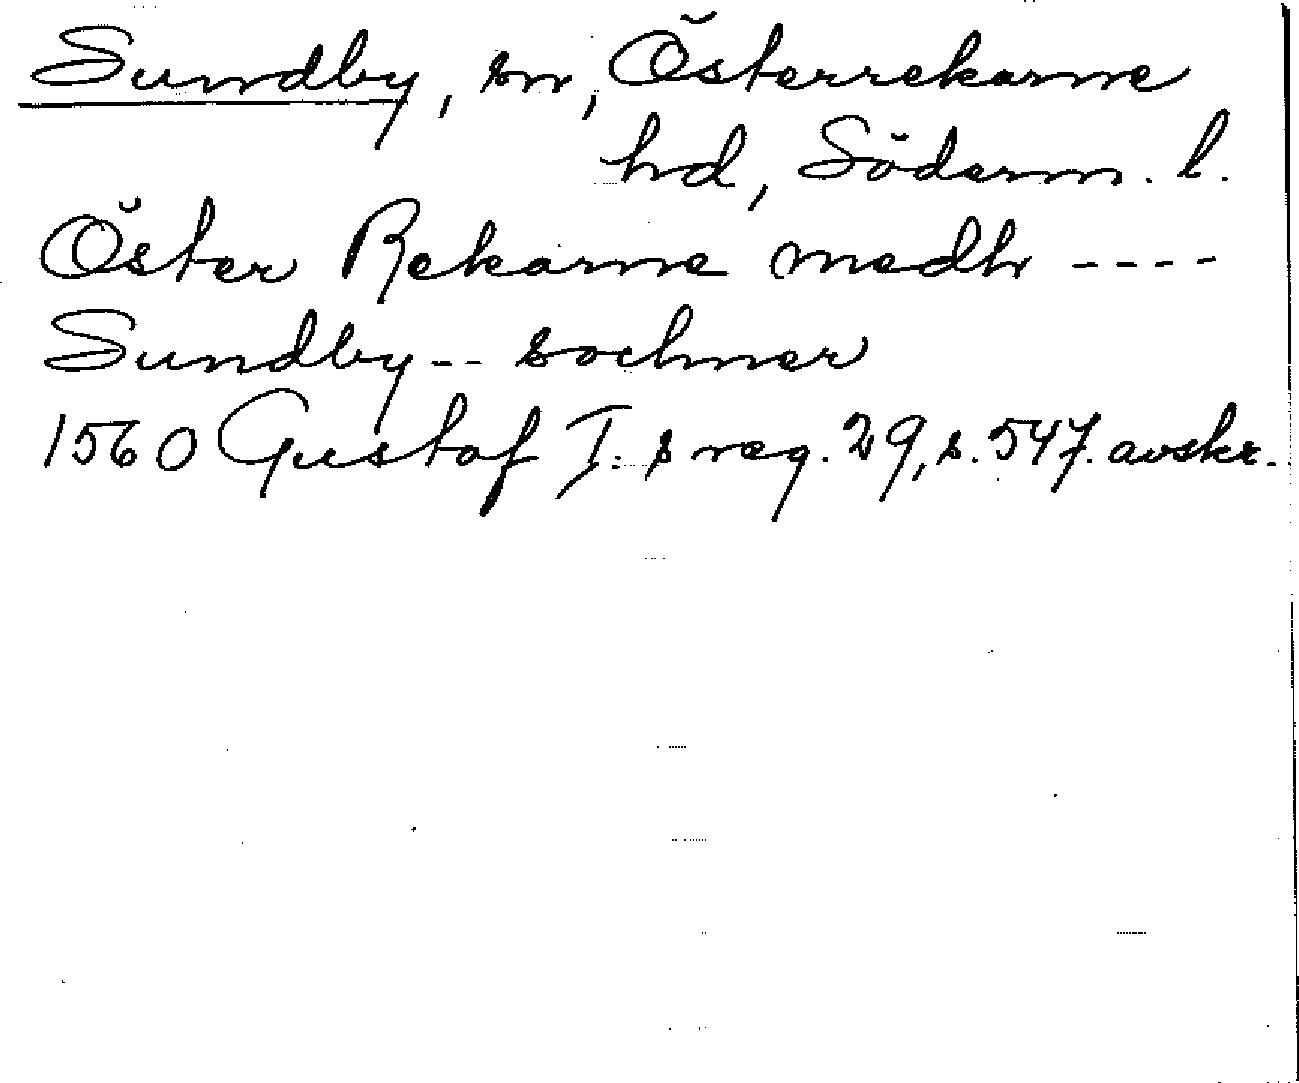 Sundby, sn, Österrekarne
hd, Söderm. l.
Öster Rekarne medh ----
Sundby -- sochner
1560 Gustaf I:s reg. 29, s. 547. avskr.